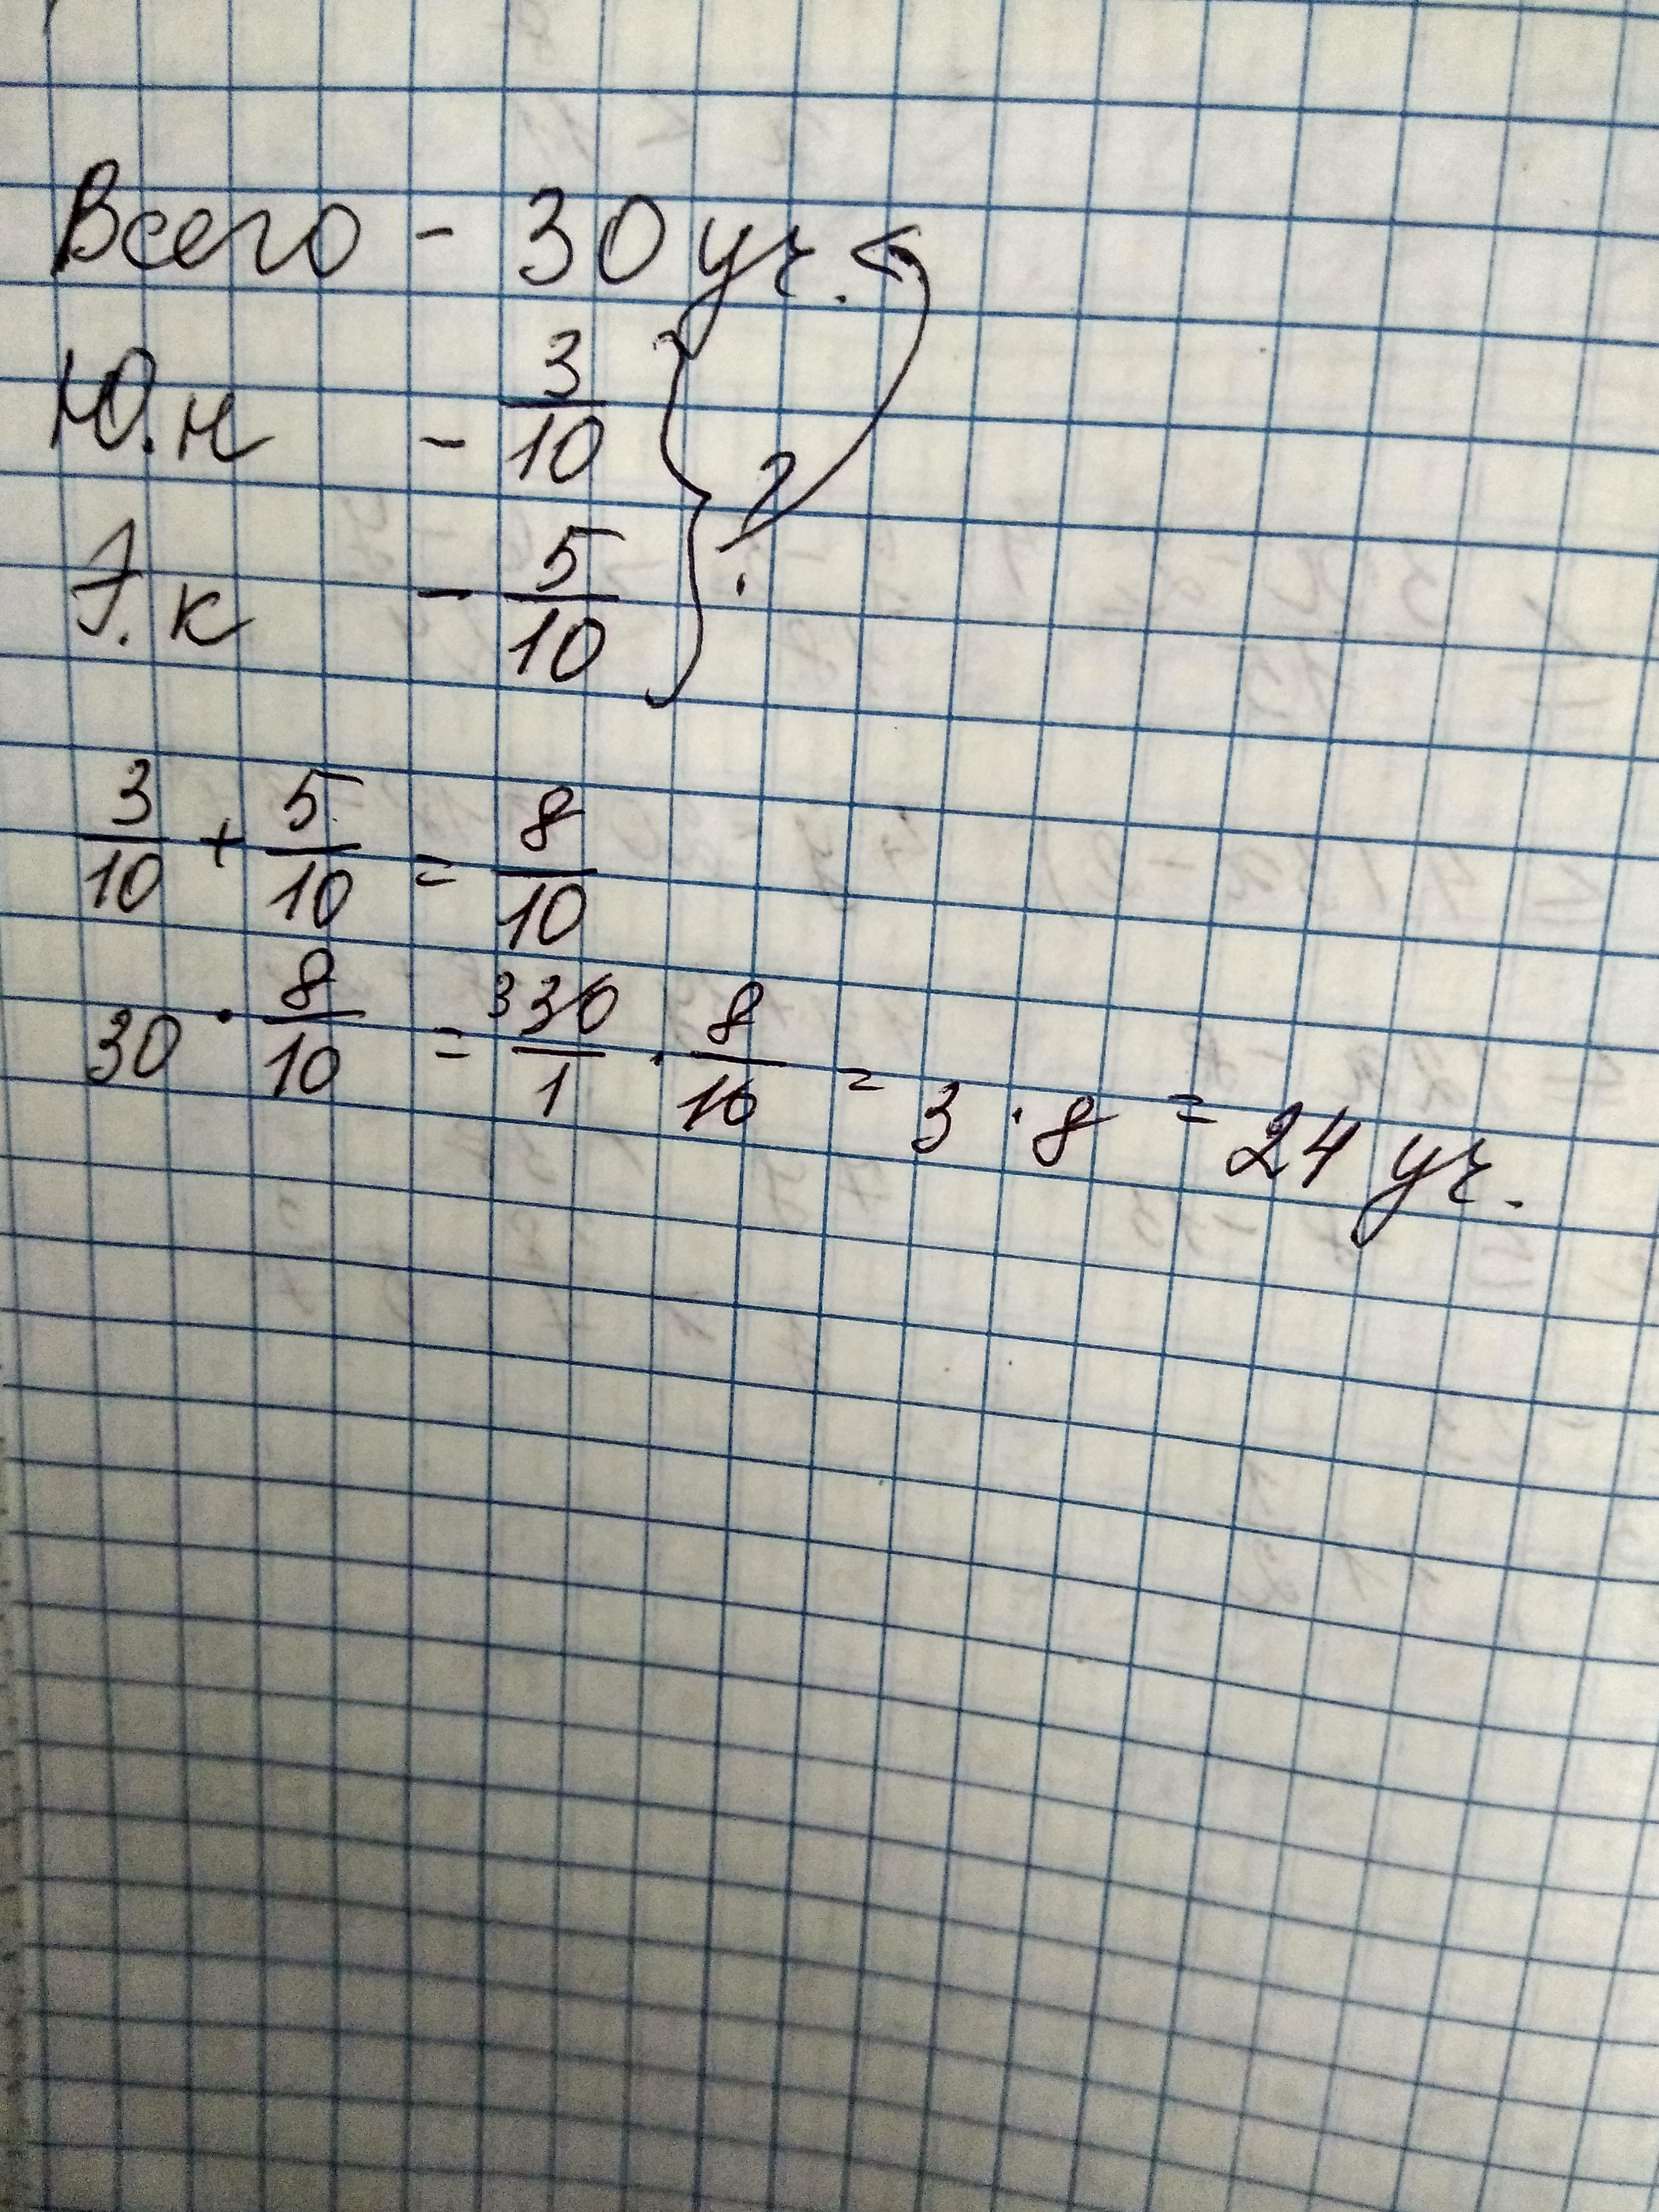 Всего - 30 уч.
Ю.н - 3/10
Э.к - 5/10 } ?
3/10 + 5/10 = 8/10
30 · 8/10 = 3 30/1 · 8/10 = 3 · 8 = 24 уч.